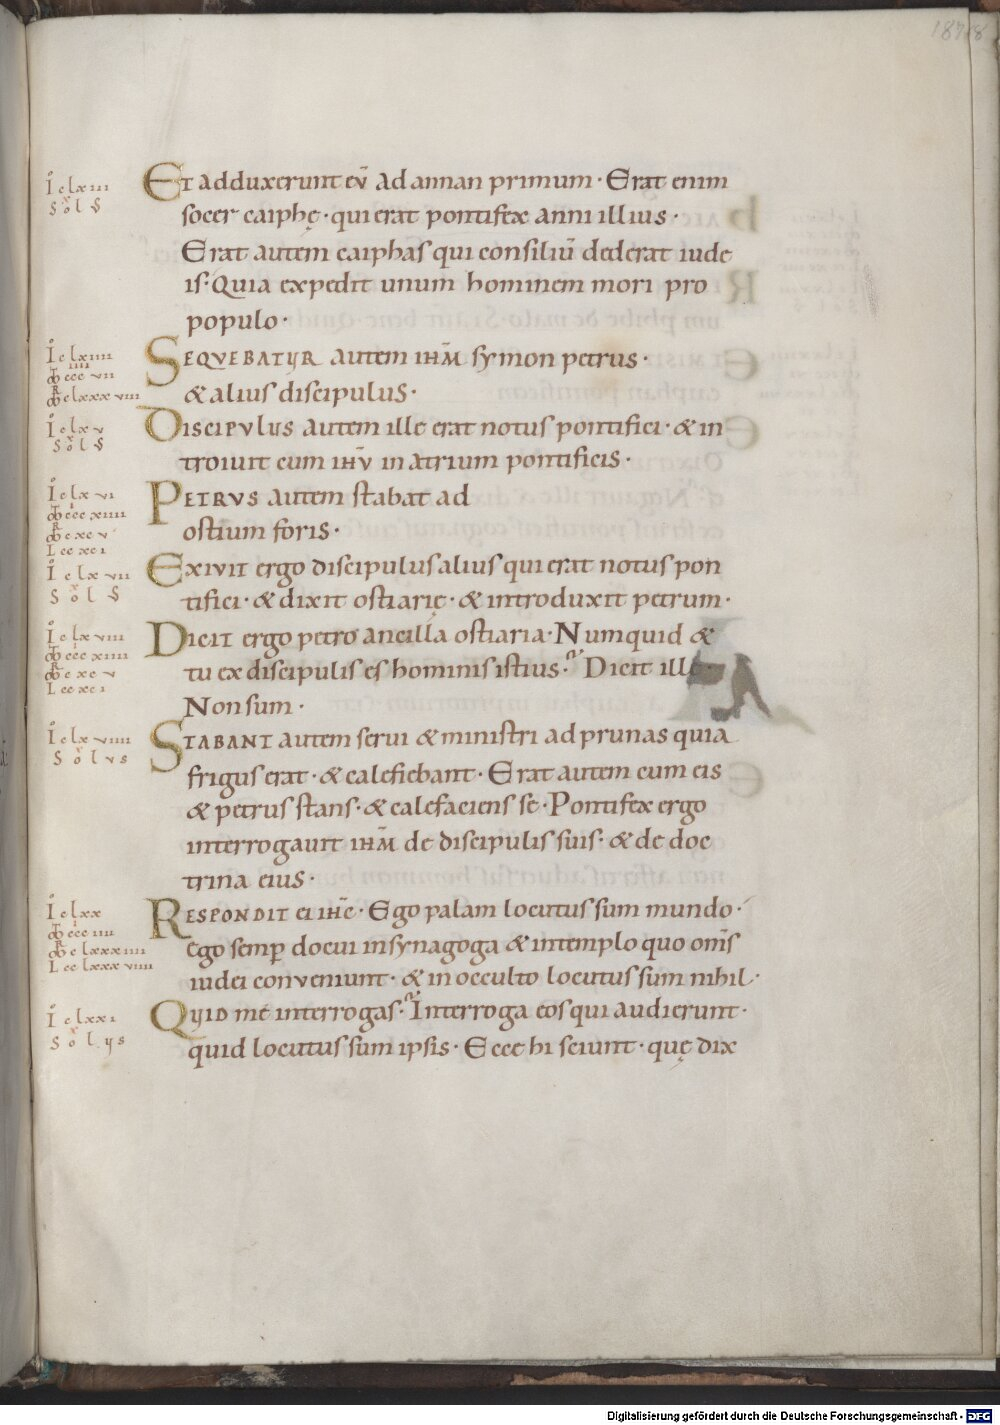 Et adduxerunt eū ad annan primum· Erat enim
socer caiphę· qui erat pontifex anni illius·
Erat autem caiphas qui consiliū dederat iude
is· Quia expedit unum hominem mori pro
populo·
SEQVEBATVR autem IHM̄ symon petrus·
& alius discipulus·
Discipulus autem ille erat notus pontifici· & in
troiuit cum IHV̄ in atrium pontificis·
PETRVS autem stabat ad
ostium foris·
EXIVIT ergo discipulus alius qui erat notus pon
tifici· & dixit ostiarię· & introduxit petrum·
DICIT ergo petro ancilla ostiaria· Numquid &
tu ex discipulis es hominis istius? Dicit ille
Non sum·
STABANT autem serui & ministri ad prunas quia
frigus erat· & calefiebant· Erat autem cum eis
& petrus stans· & calefaciens se· Pontifex ergo
interrogauit IHM̄ de discipulis suis· & de doc
trina eius·
RESPONDIT ei IHC̄· Ego palam locutus sum mundo·
Ego semp̄ docui in synagoga & in templo quo om̄s
iudei conveniunt· & in occulto locutus sum nihil·
QVID me interrogas? Interroga eos qui audierunt·
quid locutus sum ipsis· Ecce hi sciunt· quę dix
Io clxiii
Sol S
Io clxiiii
cccvii
clxxxviii
Io clxv
Sol S
Io clxvi
cccxiiii
cxcv
L ccxci
Io clxvii
Sol S
Io clxviii
cccxiiii
cxcv
L ccxci
Io clxviiii
Solus
Io clxx
ccciiii
clxxxiiii
L cclxxxviiii
Io clxxi
Digitalisierung gefördert durch die Deutsche Forschungsgemeinschaft - DFG